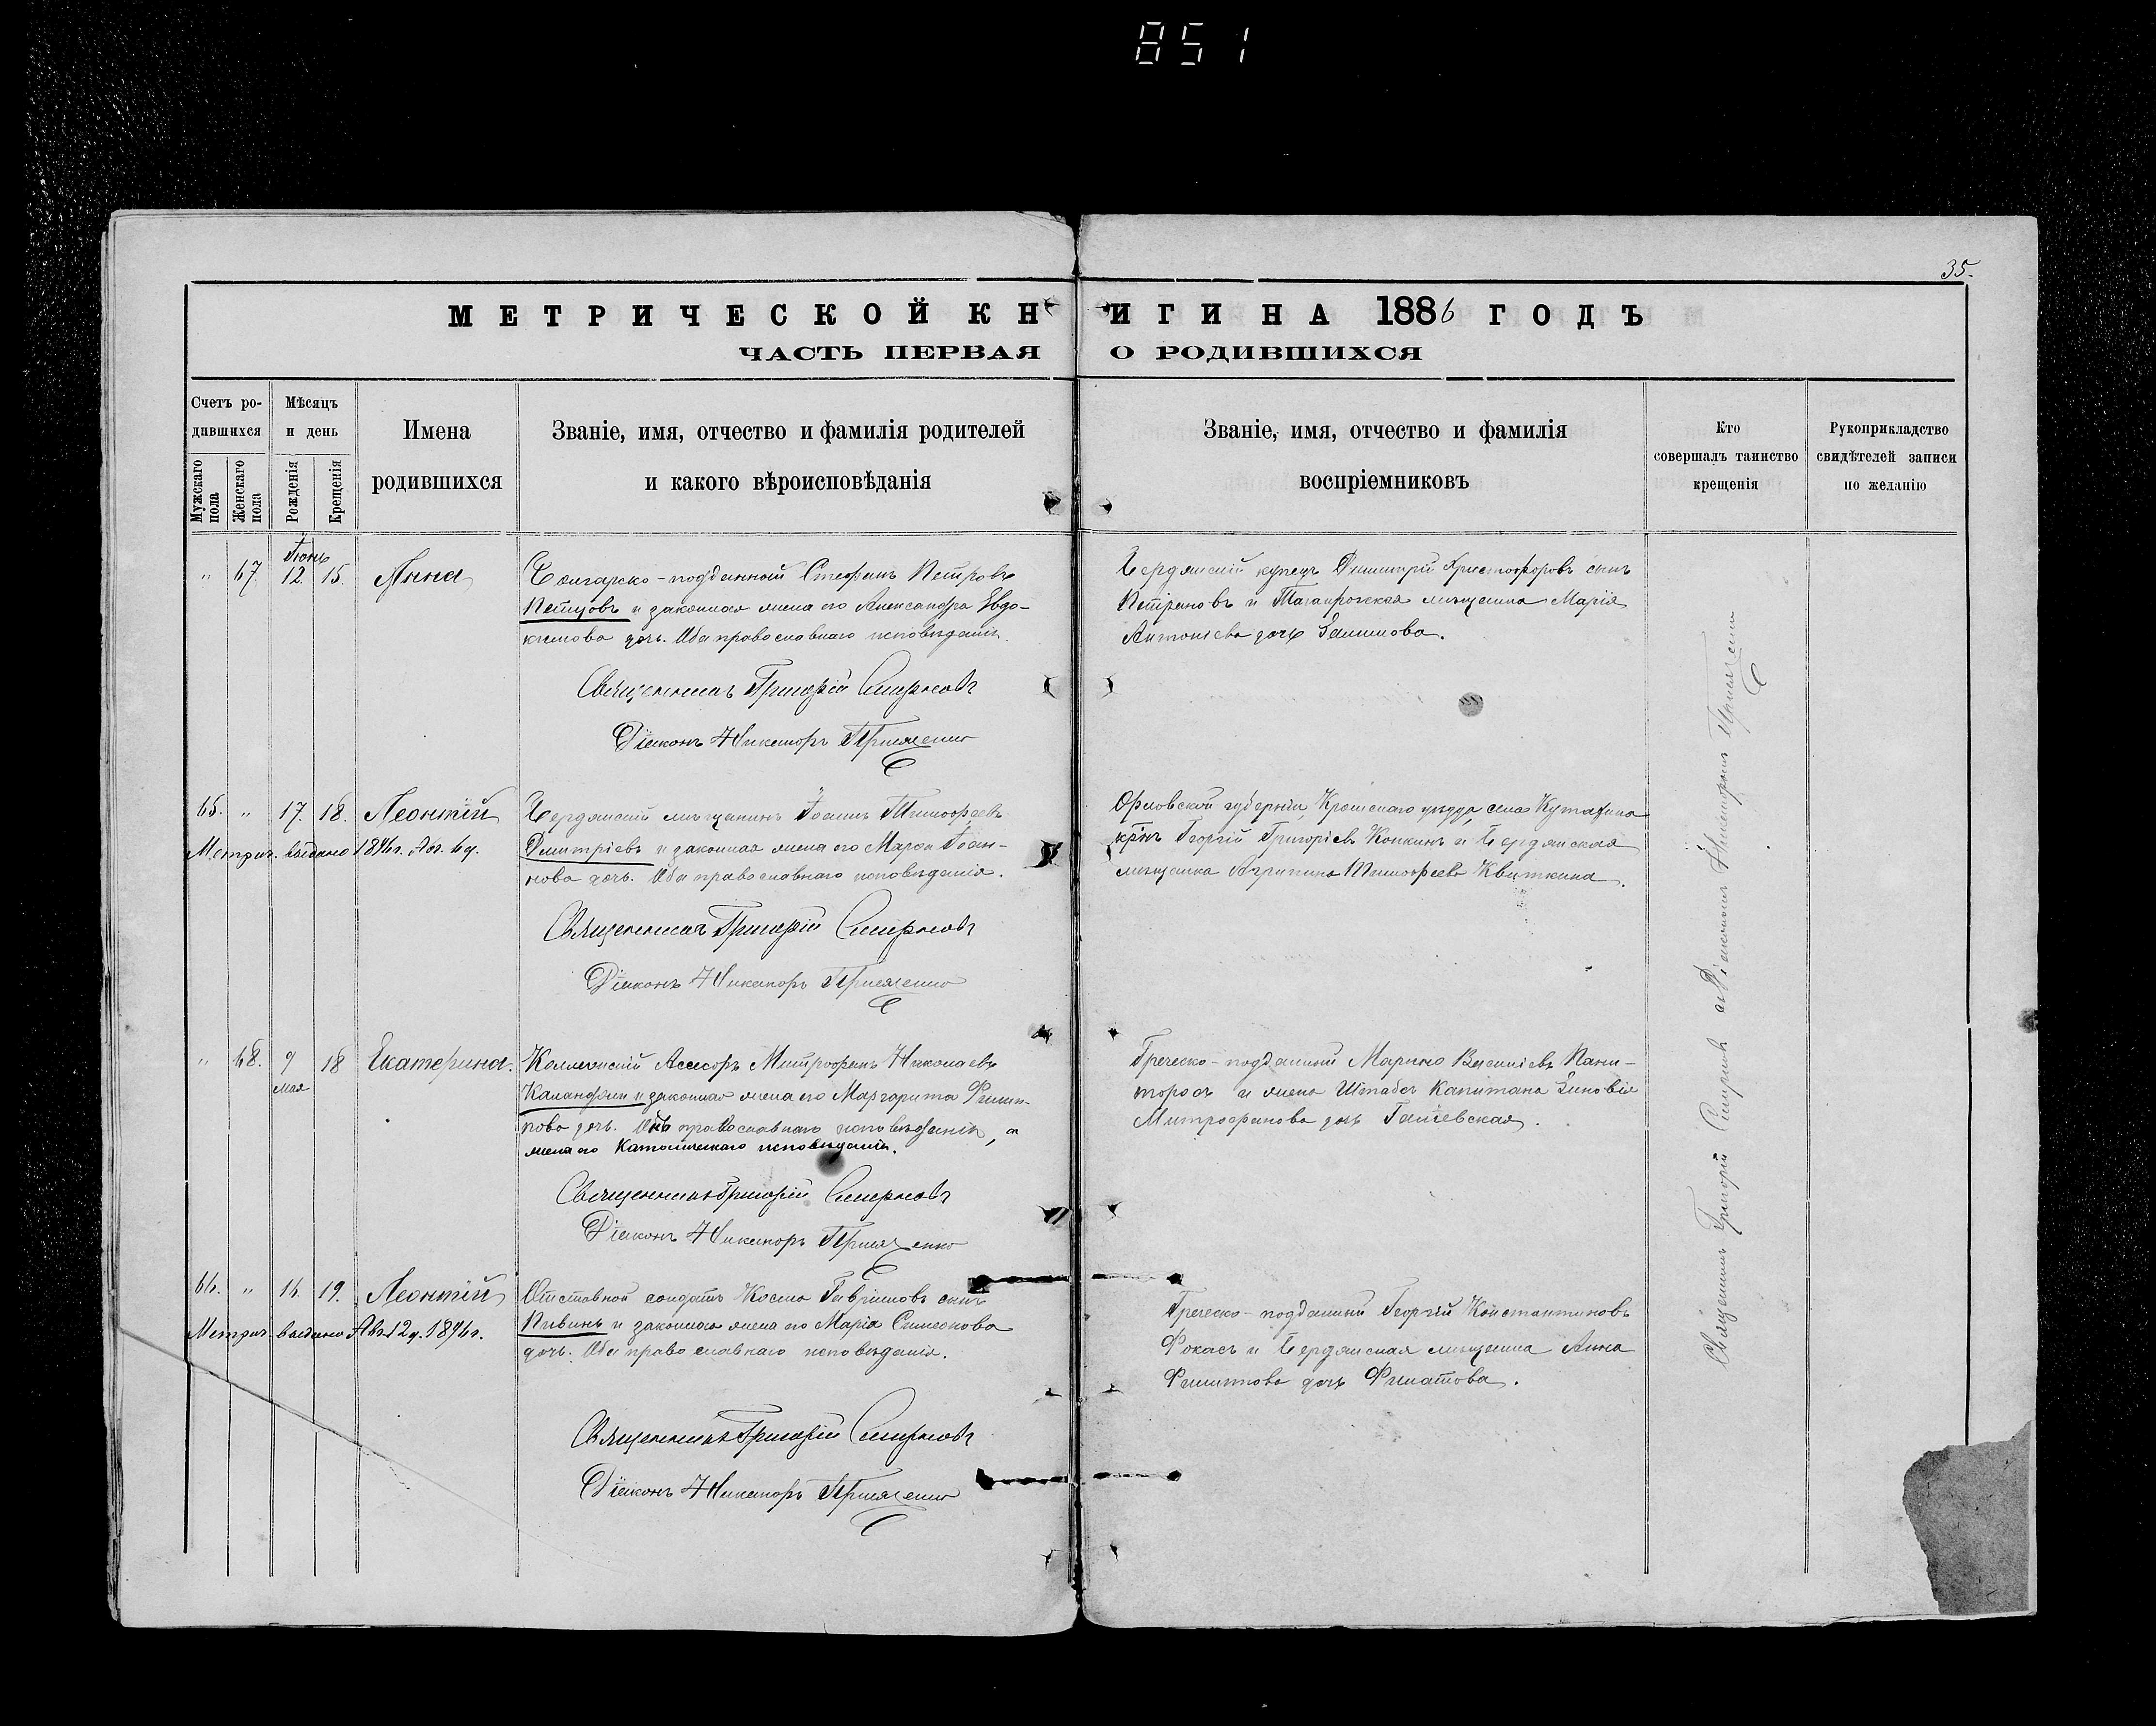 851
35.
МЕТРИЧЕСКОЙ КНИГИ НА 1886 ГОДЪ
ЧАСТЬ ПЕРВАЯ О РОДИВШИХСЯ
Счетъ ро-
дившихся
Мужскаго пола
Женскаго пола
Мѣсяцъ
и день
Рожденія
Крещенія
Имена
родившихся
Званіе, имя, отчество и фамилія родителей
и какого вѣроисповѣданія
Званіе, имя, отчество и фамилія
воспріемниковъ
Кто
совершалъ таинство
крещенія
Рукоприкладство
свидѣтелей записи
по желанію
Іюнь
" 67. 12. 15. Анна
Болгарско-подданный Стефанъ Петровъ
и законная жена его Александра Евдо-
кимова дочь. Оба православнаго исповѣданія.
Священникъ Григорій Смирновъ
Діаконъ Никаноръ
Бердянскій купецъ Димитрій Христофоровъ сынъ
и Таганрогская мѣщанка Марія
Антоніева дочь
65. " 17. 18. Леонтій
Метрич. выдано
Бердянскій мѣщанинъ Іоаннъ Тимофеевъ
Димитріевъ и законная жена его Марѳа Іоан-
нова дочь. Оба православнаго исповѣданія.
Священникъ Григорій Смирновъ
Діаконъ Никаноръ
Орловской губерніи, уѣзда, села Кутафина
кр-нъ Георгій Григоріевъ Конкинъ и Бердянская
мѣщанка Агрипина Тимофеева Квиткина.
" 68. 9 18 Екатерина.
мая
Коллежскій Асессоръ Митрофанъ Николаевъ
и законная жена его Маргарита Филип-
пова дочь. православнаго исповѣданія, а
жена его Католическаго исповѣданія.
Священникъ Григорій Смирновъ
Діаконъ Никаноръ
Греческо-подданный Марино
и жена Штабсъ Капитана Зиновія
Митрофанова дочь
66. " 16. 19. Леонтій
Метрич. выдано Авг. 12 д.
Отставной солдатъ Косма Гавріиловъ сынъ
Пивинъ и законная жена его Марія Симеонова
дочь. Оба православнаго исповѣданія.
Священникъ Григорій Смирновъ
Діаконъ Никаноръ
Греческо-подданный Георгій Константиновъ
Фокасъ и Бердянская мѣщанка Анна
Филиппова дочь Филатова.
Священникъ Григорій Смирновъ съ Діакономъ Никаноромъ